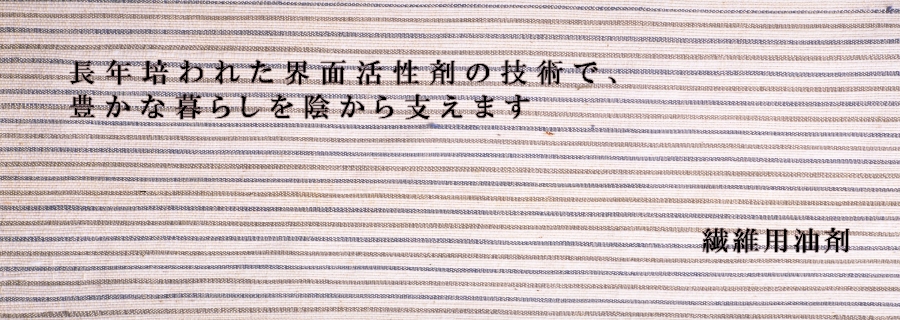 長年培われた界面活性剤の技術で、
豊かな暮らしを陰から支えます
繊維用油剤